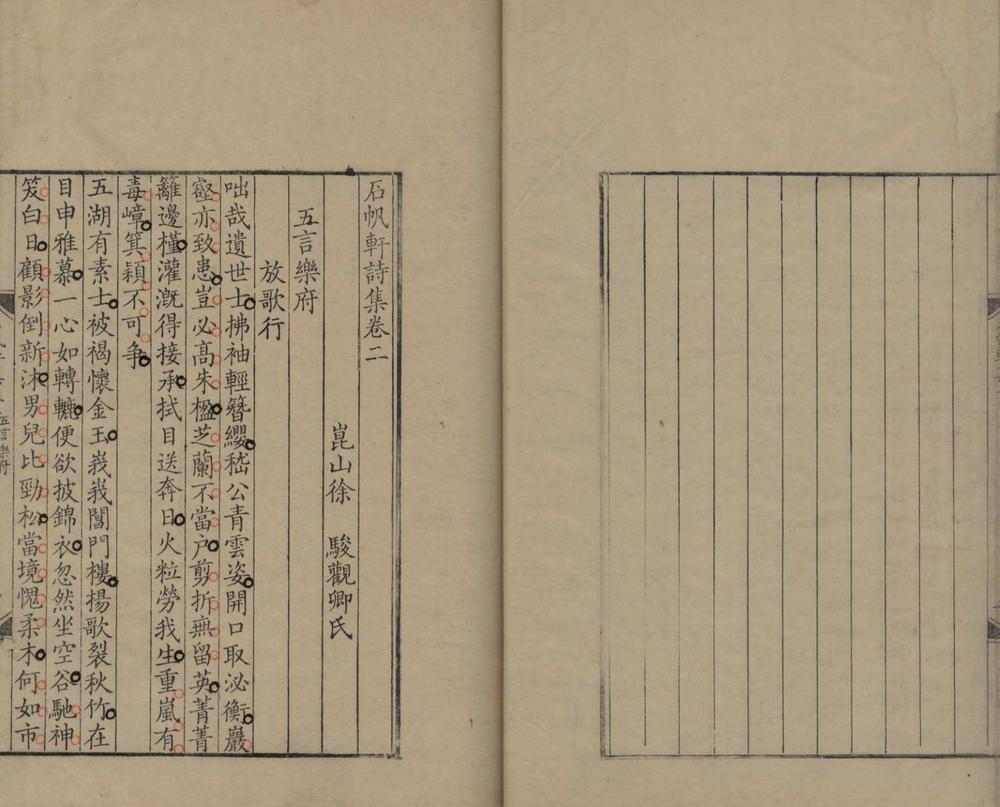 石帆軒詩集卷二
崑山徐 駿觀卿氏
五言樂府
放歌行
咄哉遺世士拂袖輕簪纓嵇公青雲姿開口取泌衡巖
壑亦致患豈必高朱楹芝蘭不當户剪折無留英菁菁
籬邊槿灌溉得接承拭目送奔日火粒勞我生重嵐有
毒嶂箕潁不可争
五湖有素士被褐懷金玉峩峩閶門樓揚歌裂秋竹在
目申雅慕一心如轉轆便欲披錦衣忽然坐空谷馳神
笈白日顧影倒新沐男兒比勁松當境愧柔木何如市
五言樂府